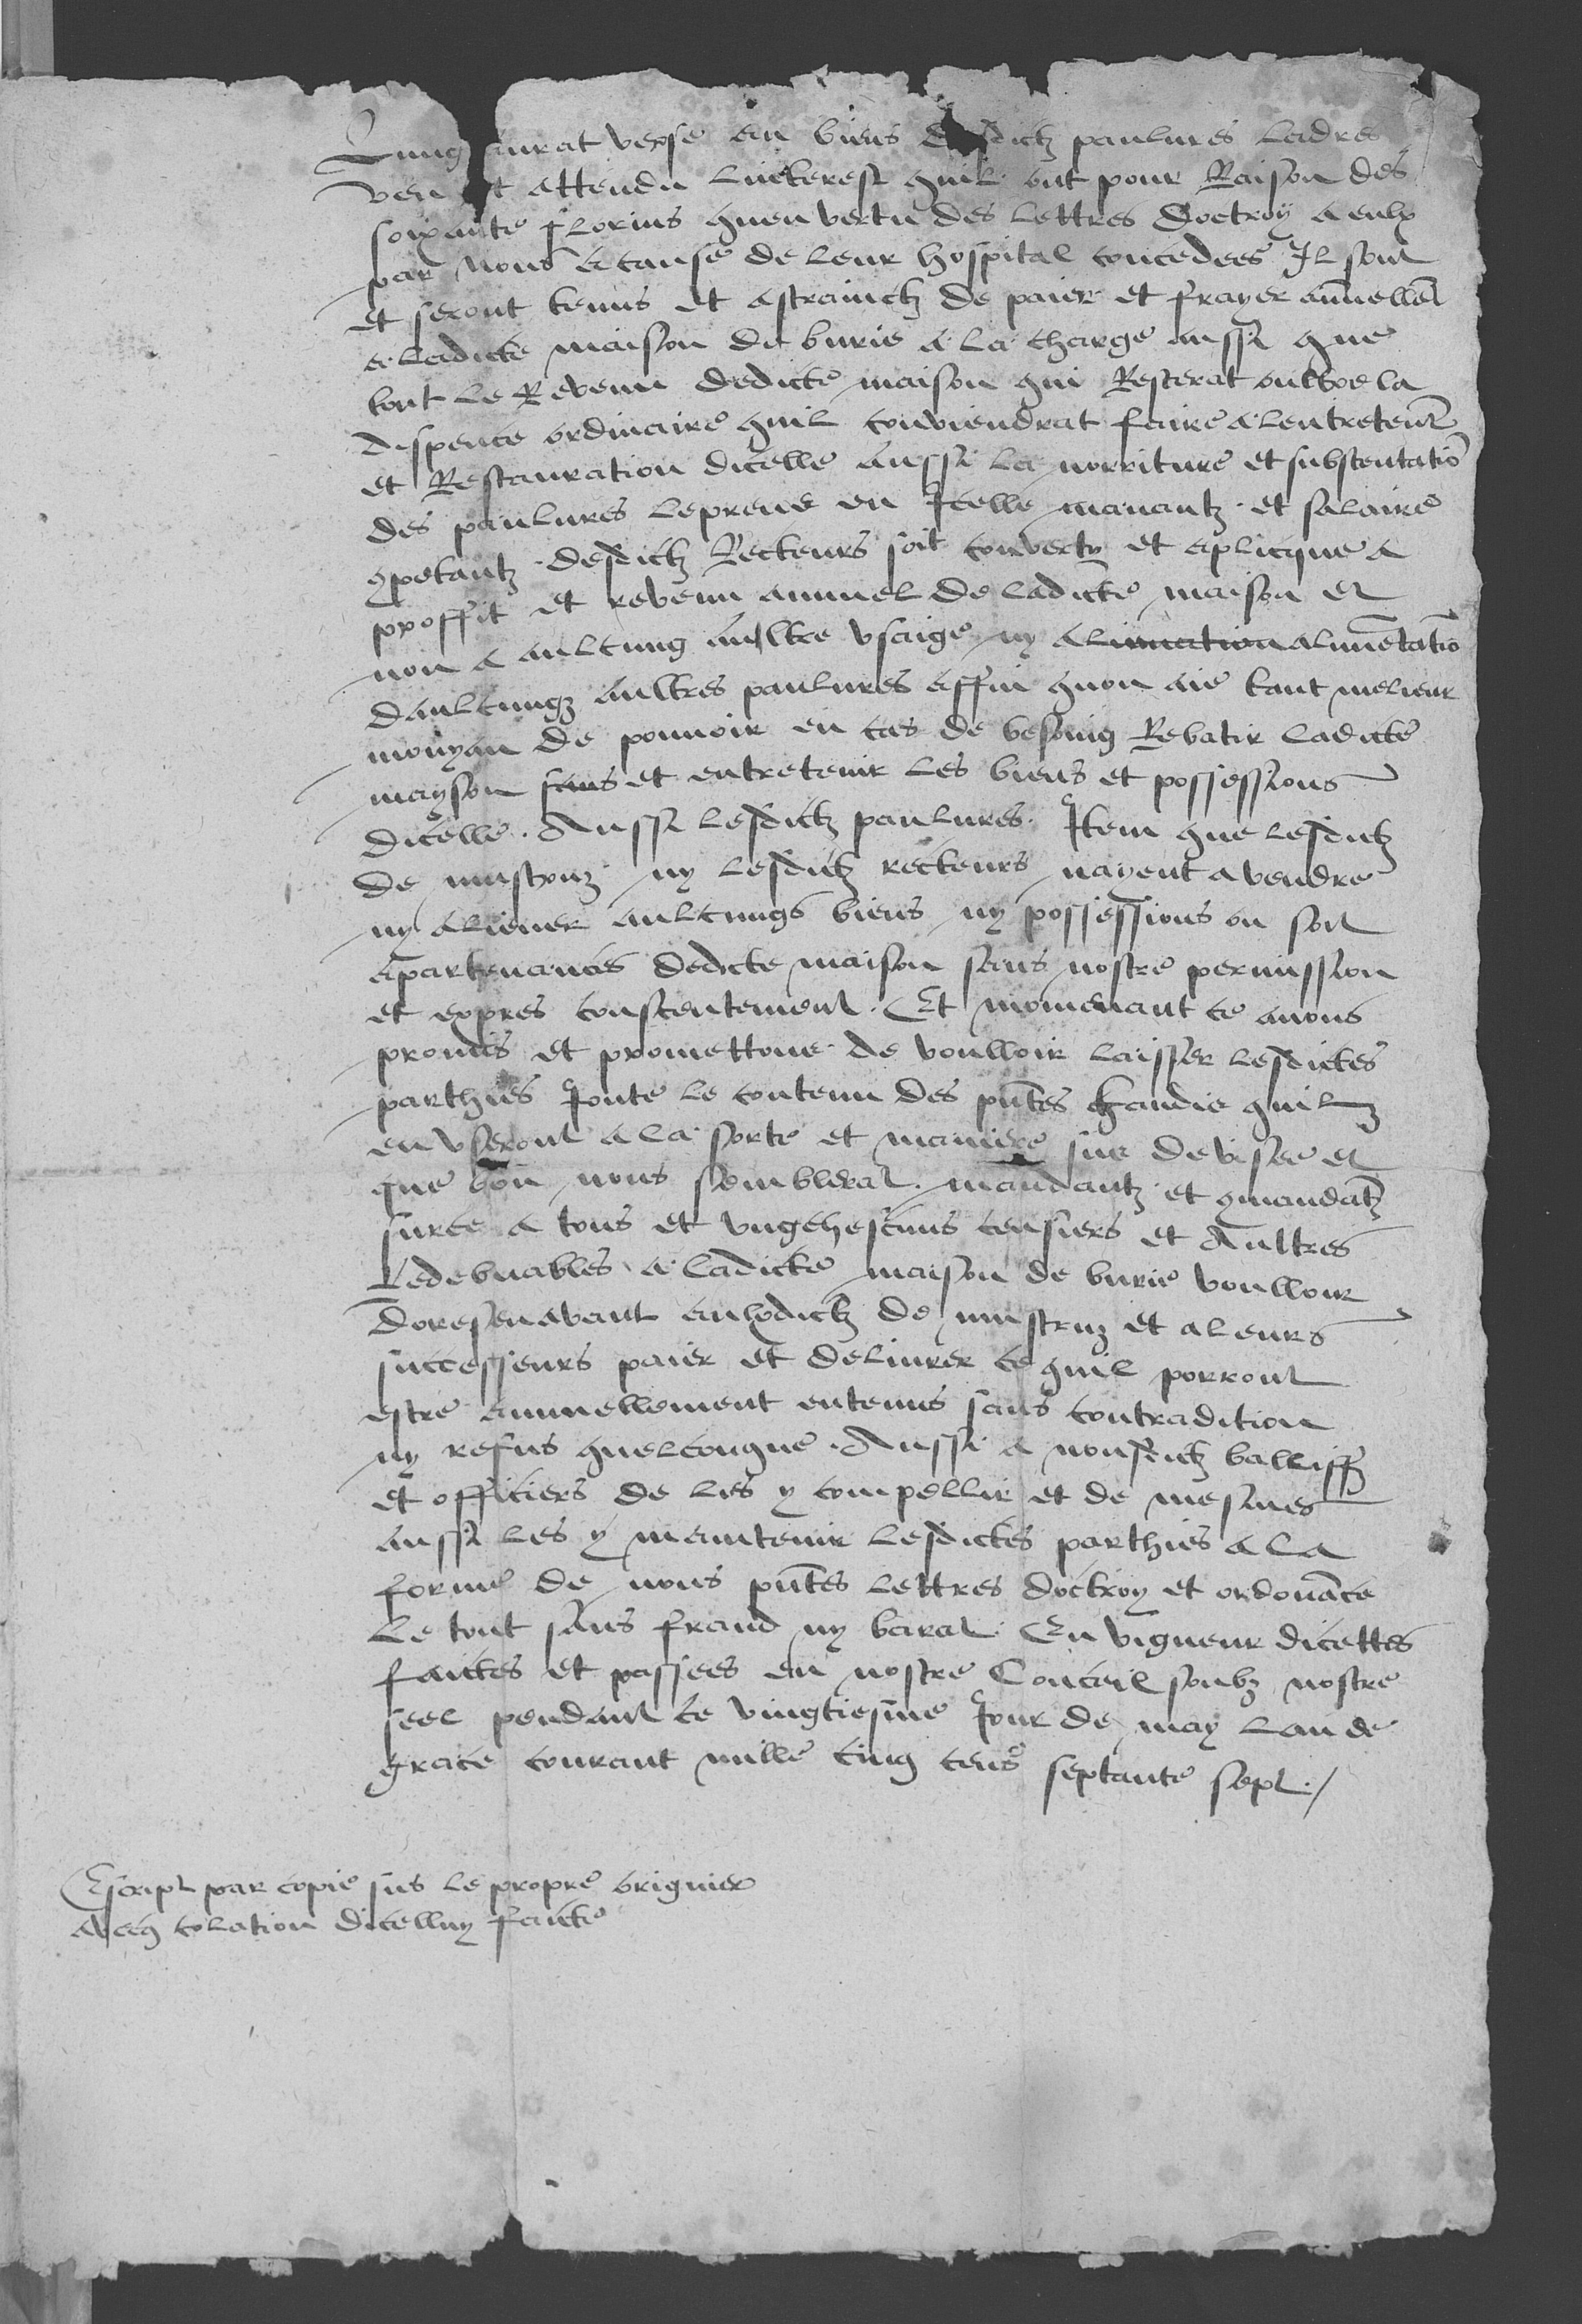 Lung aurat verse en biens desdictz paulvres ladres
veu et attendu linterest quil ont pour Raison des
soixante florins quen vertu des lettres doctroy a eulx
par nous a cause de leur hospital concedees Il sont
et seront tenus et astrainctz de paier et frayer annuellemt
a ladicte maison de burie a la charge aussi que
tout le Revenu dedicte maison qui Resterat oultre la
dispence ordinaire quil conviendrat faire a lentretenir
et Restauration dicelle aussi la norriture et substentatio
des paulvres lepreux en Icelle manantz et salaire
competantz desdictz Recteurs soit converty et aplicque a
proffit et revenu annuel de ladicte maison et
non a aulcung aultre usaige ny alimentation alimetatio
daulcungz aultres paulvres affin quon aie tant melieur
mouyan de pouvoir en cas de besoing Rebatir ladicte
mayson sans et entretenir les biens et possessions
dicelle. Aussi lesdictz paulvres. Item que lesdictz
de mustruz ny lesdictz recteurs nayent a vendre
ny aliener aulcungs biens ny possessions ou soit
apartenances dedicte maison sans nostre permission
et expres conscentement. Et moienant ce avons
promis et promettons de voulloir laisser lesdictes
parthies Joute le contenu des pntes tandis quilz
en useront a la sorte et maniere sus devisee et
que bon nous semblerat. mandantz et comandatz
surce a tous et ungchescuns censiers et Aultres
Redebvables a ladicte maison de burie voulloir
doresenavant aulxdictz de mustruz et a leurs
successeurs paier et delivrer ce quil porront
estre annuellement entenus sans contradition
ny refus quelconque. Aussi a nousdictz balliffz
et officiers de les y compellir et de mesmes
aussi les y maintenir lesdictes parthies a la
forme de nous pntes lettres doctroy et ordonace
Le tout sans fraud ny barat. En vigueur dicettes
faictes et passees en nostre Conceil soubz nostre
seel pendant le vingtiesme Jour de may lan de
grace courant mille cinq cens septante sept./
Escript par copie sus le propre originer
avecq colation dicelluy faicte